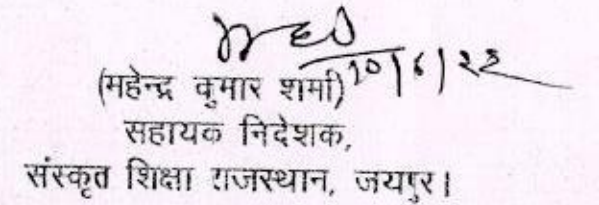 20/6/23
(महेन्द्र कुमार शर्मा)
सहायक निदेशक,
संस्कृत शिक्षा राजस्थान, जयपुर।